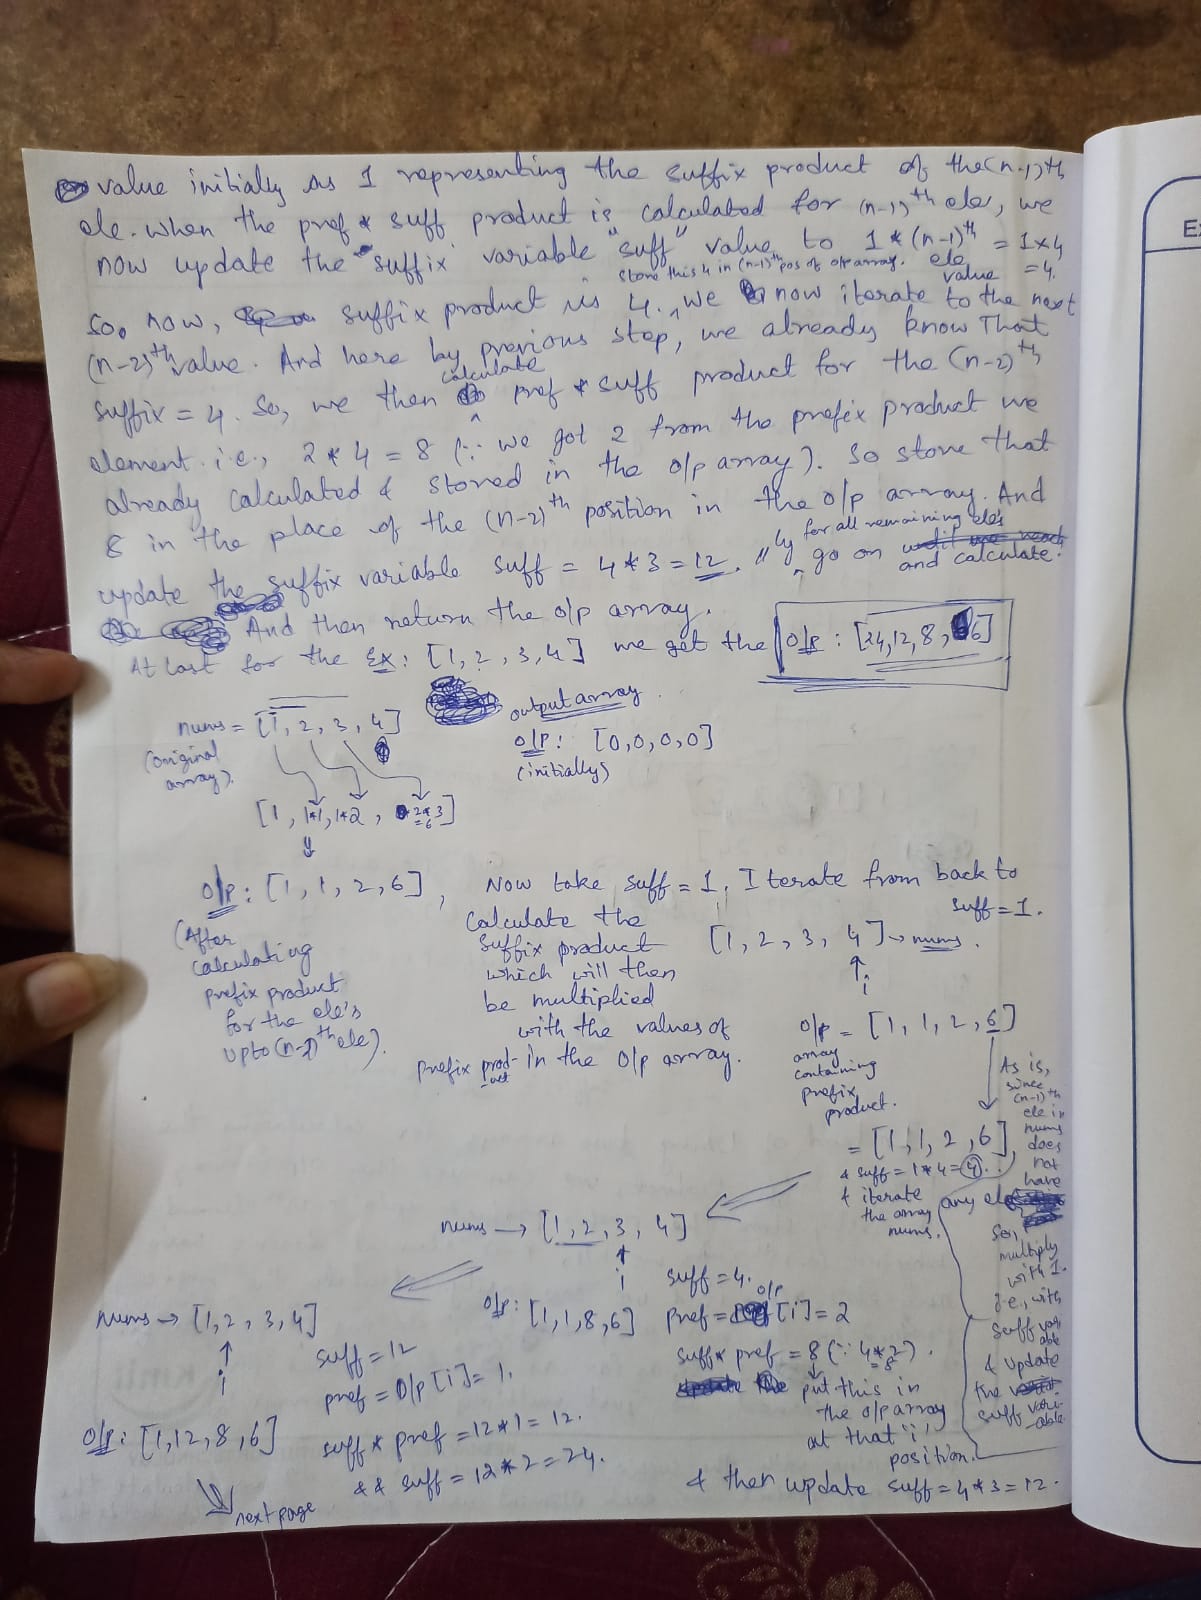 value initially as 1 representing the suffix product of the (n-1)th
ele. when the pref * suff product is calculated for (n-1)th ele, we
now update the "suffix" variable "suff" value to 1 * (n-1)th ele value = 1*4 = 4.
store this 4 in (n-1)th pos of o/p array.
So, now, suffix product is 4. we now iterate to the next
(n-2)th value. And here by previous step, we already know that
suffix = 4. So, we then calculate pref * suff product for the (n-2)th
element. i.e., 2 * 4 = 8 (∵ we got 2 from the prefix product we
already calculated & stored in the o/p array). So store that
8 in the place of the (n-2)th position in the o/p array. And
update the suffix variable suff = 4*3 = 12. lly for all remaining ele's go on and calculate.
And then return the o/p array.
At last for the Ex: [1, 2, 3, 4] we get the O/P : [24,12,8,6]
nums = [1, 2, 3, 4]
(original
array).
output array.
O/P: [0,0,0,0]
(initially)
[1, 1*1, 1*2, 2*3]
=6
O/P: [1, 1, 2, 6],
(After
calculating
prefix product
for the ele's
upto (n-2)th ele).
Now take suff = 1. Iterate from back to
Calculate the
suffix product
which will then
be multiplied
with the values of
prefix product in the O/p array.
suff = 1.
[1, 2, 3, 4] → nums.
↑
i
o/p = [1, 1, 2, 6]
array
containing
prefix
product.
= [1, 1, 2, 6]
& suff = 1*4 = 4.
& iterate
the array
nums.
As is,
since
(n-1)th
ele in
nums
does
not
have
any ele
So,
multiply
with 1.
i.e., with
suff vari
able
& update
the
suff vari-
able
nums → [1, 2, 3, 4]
↑
i
O/P: [1,1,8,6]
suff = 4.
pref = o/p [i] = 2
suff * pref = 8 (∵ 4*2)
=8
put this in
the o/p array
at that 'i'
position.
& then update suff = 4*3 = 12.
nums → [1, 2, 3, 4]
↑
i
O/P: [1,12,8,6]
suff = 12
pref = O/p [i] = 1.
suff * pref = 12*1 = 12.
&& suff = 12*2 = 24.
next page
E